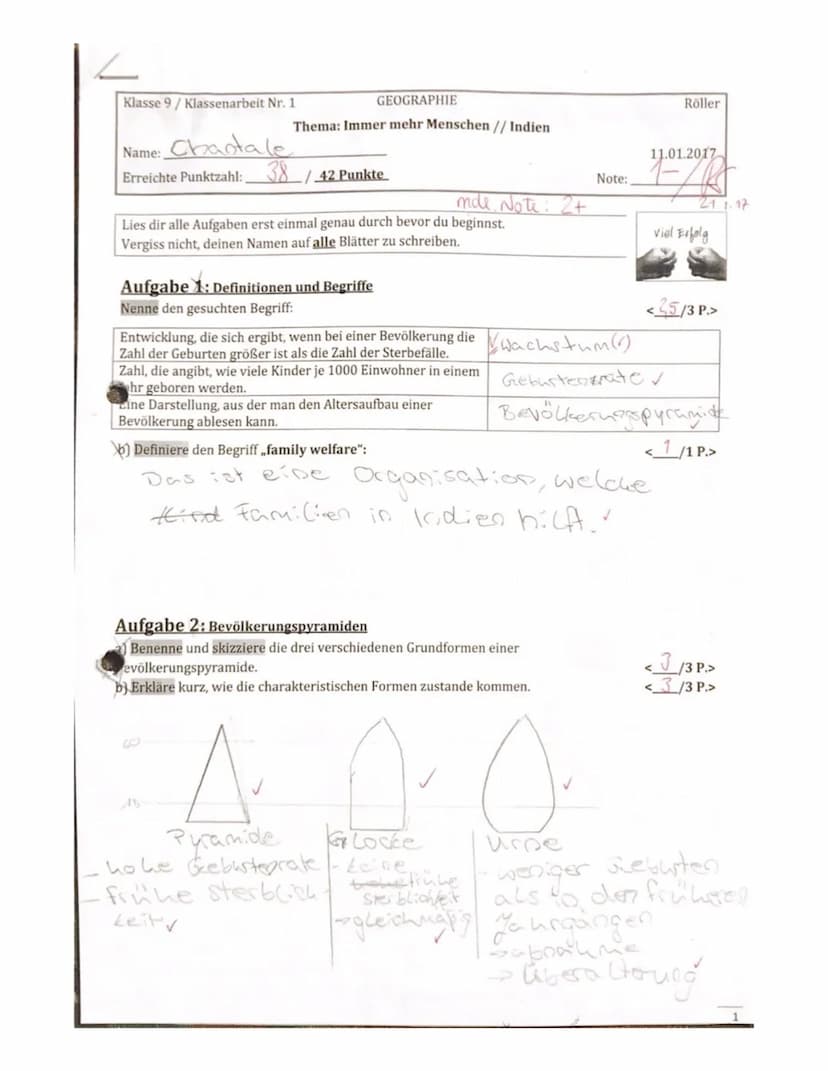 Klasse 9 / Klassenarbeit Nr. 1 GEOGRAPHIE Röller
Thema: Immer mehr Menschen // Indien
Name: Chantale 11.01.2017
Erreichte Punktzahl: 38 / 42 Punkte Note: 1-/
mdl. Note: 2+ 21.1.17
Lies dir alle Aufgaben erst einmal genau durch bevor du beginnst.
Vergiss nicht, deinen Namen auf alle Blätter zu schreiben.
Viel Erfolg
Aufgabe 1: Definitionen und Begriffe
Nenne den gesuchten Begriff: < 2,5/3 P.>
Entwicklung, die sich ergibt, wenn bei einer Bevölkerung die
Zahl der Geburten größer ist als die Zahl der Sterbefälle. Wachstum(r)
Zahl, die angibt, wie viele Kinder je 1000 Einwohner in einem
hr geboren werden. Geburtenrate ✓
Eine Darstellung, aus der man den Altersaufbau einer
Bevölkerung ablesen kann. Bevölkerungspyramide
b) Definiere den Begriff „family welfare“: < 1 /1 P.>
Das ist eine Organisation, welche
Kind Familien in Indien hilft. ✓
Aufgabe 2: Bevölkerungspyramiden
a) Benenne und skizziere die drei verschiedenen Grundformen einer
evölkerungspyramide. < 3 /3 P.>
b) Erkläre kurz, wie die charakteristischen Formen zustande kommen. < 3 /3 P.>
60
15
Pyramide Glocke Urne
- hohe Geburtenrate
- frühe Sterblich-
keit ✓
- keine
hohe frühe
Sterblichkeit
→ gleichmäßig ✓
- weniger Geburten
als in den früheren
Jahrgängen
→ abnahme
→ Überaltung ✓
1